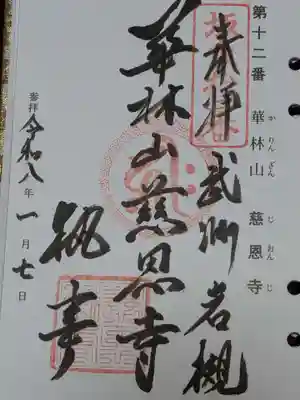 第十二番 華林山 慈恩寺
かりんざん じおんじ
奉拝 武州岩槻
華林山慈恩寺
執事
参拝 令和八年一月七日